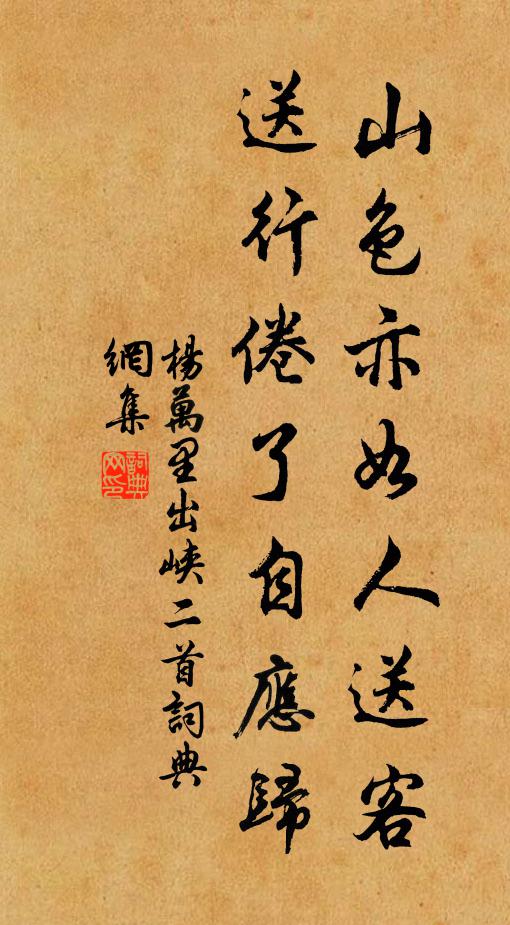 山色亦如人送客
送行倦了自應歸
楊萬里出峽二首詞典
網集
詞典
網印